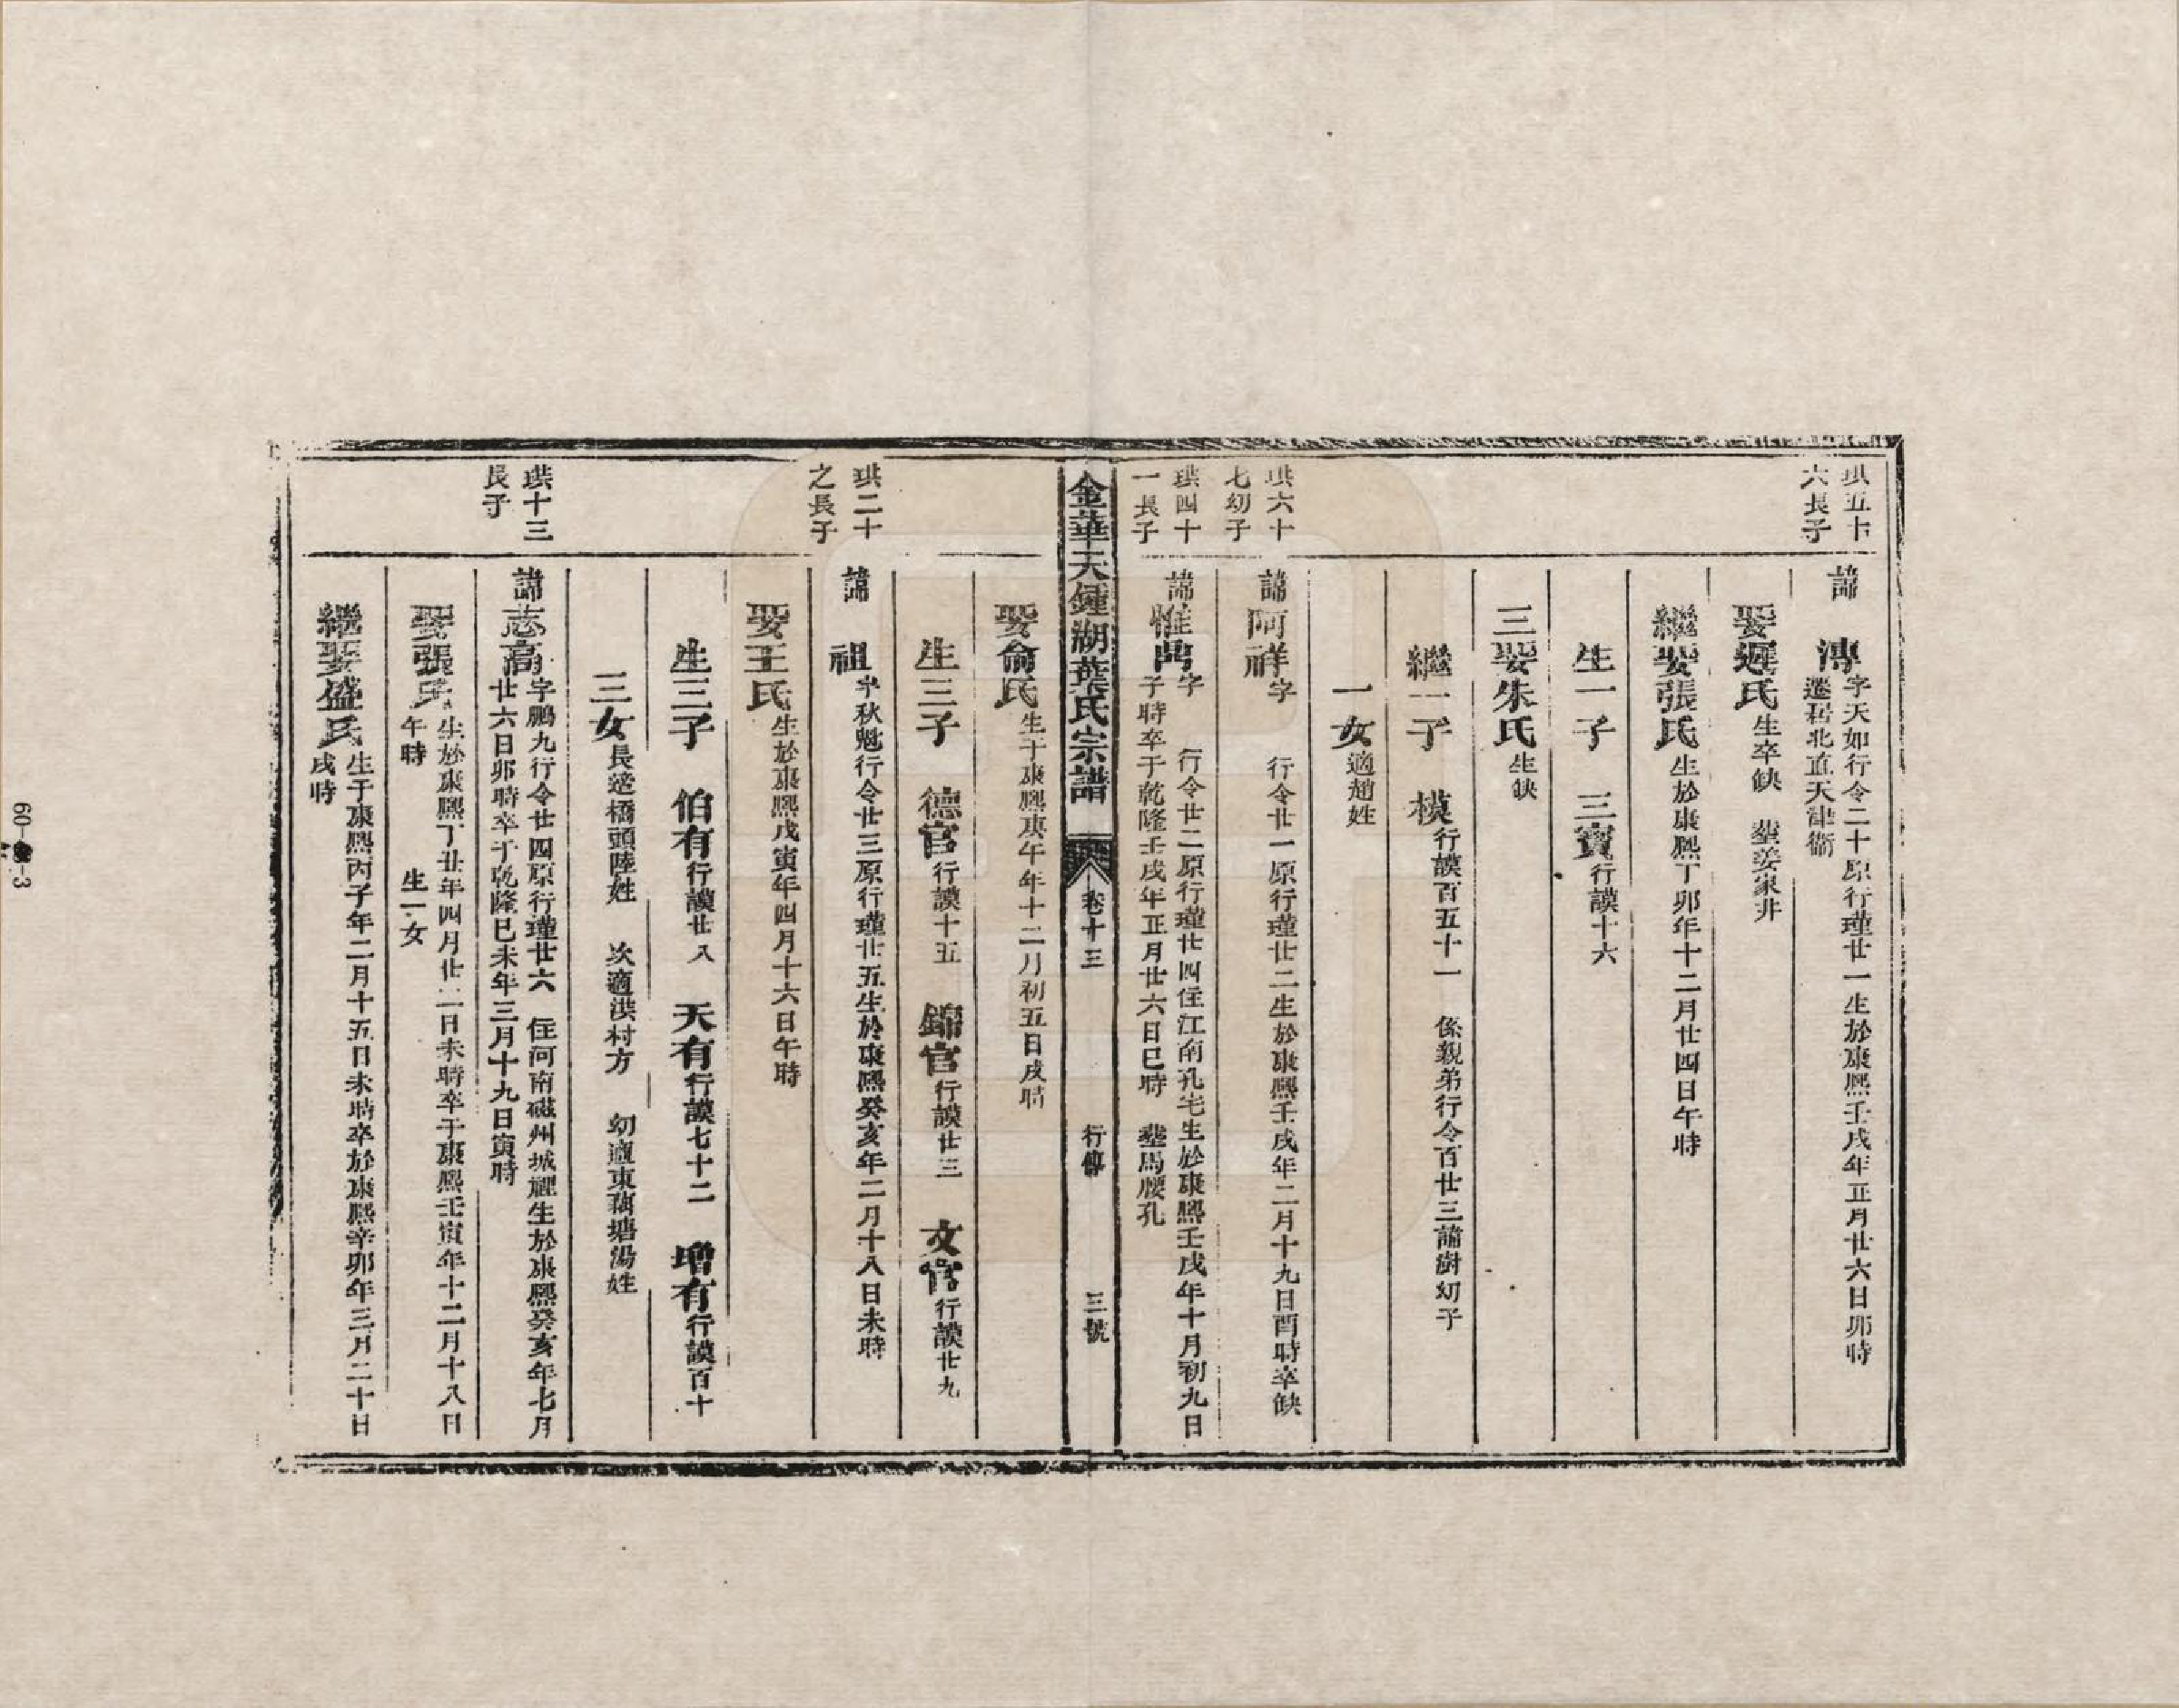 珙五十
六長子
諱　傳
字天如行令二十原行瑾廿一生於康熙壬戌年正月廿六日卯時
遷居北直天津衞
娶遲氏生卒缺　塟姜家井
繼娶張氏生於康熙丁卯年十二月廿四日午時
生一子　三寶行謨十六
三娶朱氏生缺
繼一子　模行謨百五十一　係親弟行令百廿三諱澍幼子
一女適趙姓
珙六十
七幼子
諱阿祥字　行令廿一原行瑾廿二生於康熙壬戌年二月十九日酉時卒缺
珙四十
一長子
諱惟禼字　行令廿二原行瑾廿四住江南孔宅生於康熙壬戌年十月初九日
子時卒于乾隆壬戌年正月廿六日巳時　塟馬腰孔
金華天鍾湖葉氏宗譜
卷十三　行傳　三號
娶俞氏生于康熙庚午年十二月初五日戌時
生三子　德官行謨十五　錦官行謨廿三　文官行謨廿九
珙二十
之長子
諱　祖字秋魁行令廿三原行瑾廿五生於康熙癸亥年二月十八日未時
娶王氏生於康熙戊寅年四月十六日午時
生三子　伯有行謨廿八　天有行謨七十二　增有行謨百十
三女長適橋頭陸姓　次適洪村方　幼適東藕塘湯姓
珙十三
長子
諱志高字鵬九行令廿四原行瑾廿六　住河南磁州城裡生於康熙癸亥年七月
廿六日卯時卒于乾隆已未年三月十九日寅時
娶張氏生於康熙丁丑年四月廿二日未時卒于康熙壬寅年十二月十八日
午時　生一女
繼娶盛氏生于康熙丙子年二月十五日未時卒於康熙辛卯年三月二十日
戌時